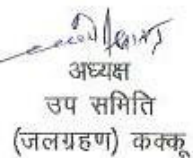 अध्यक्ष
उप समिति
(जलग्रहण) कक्कू